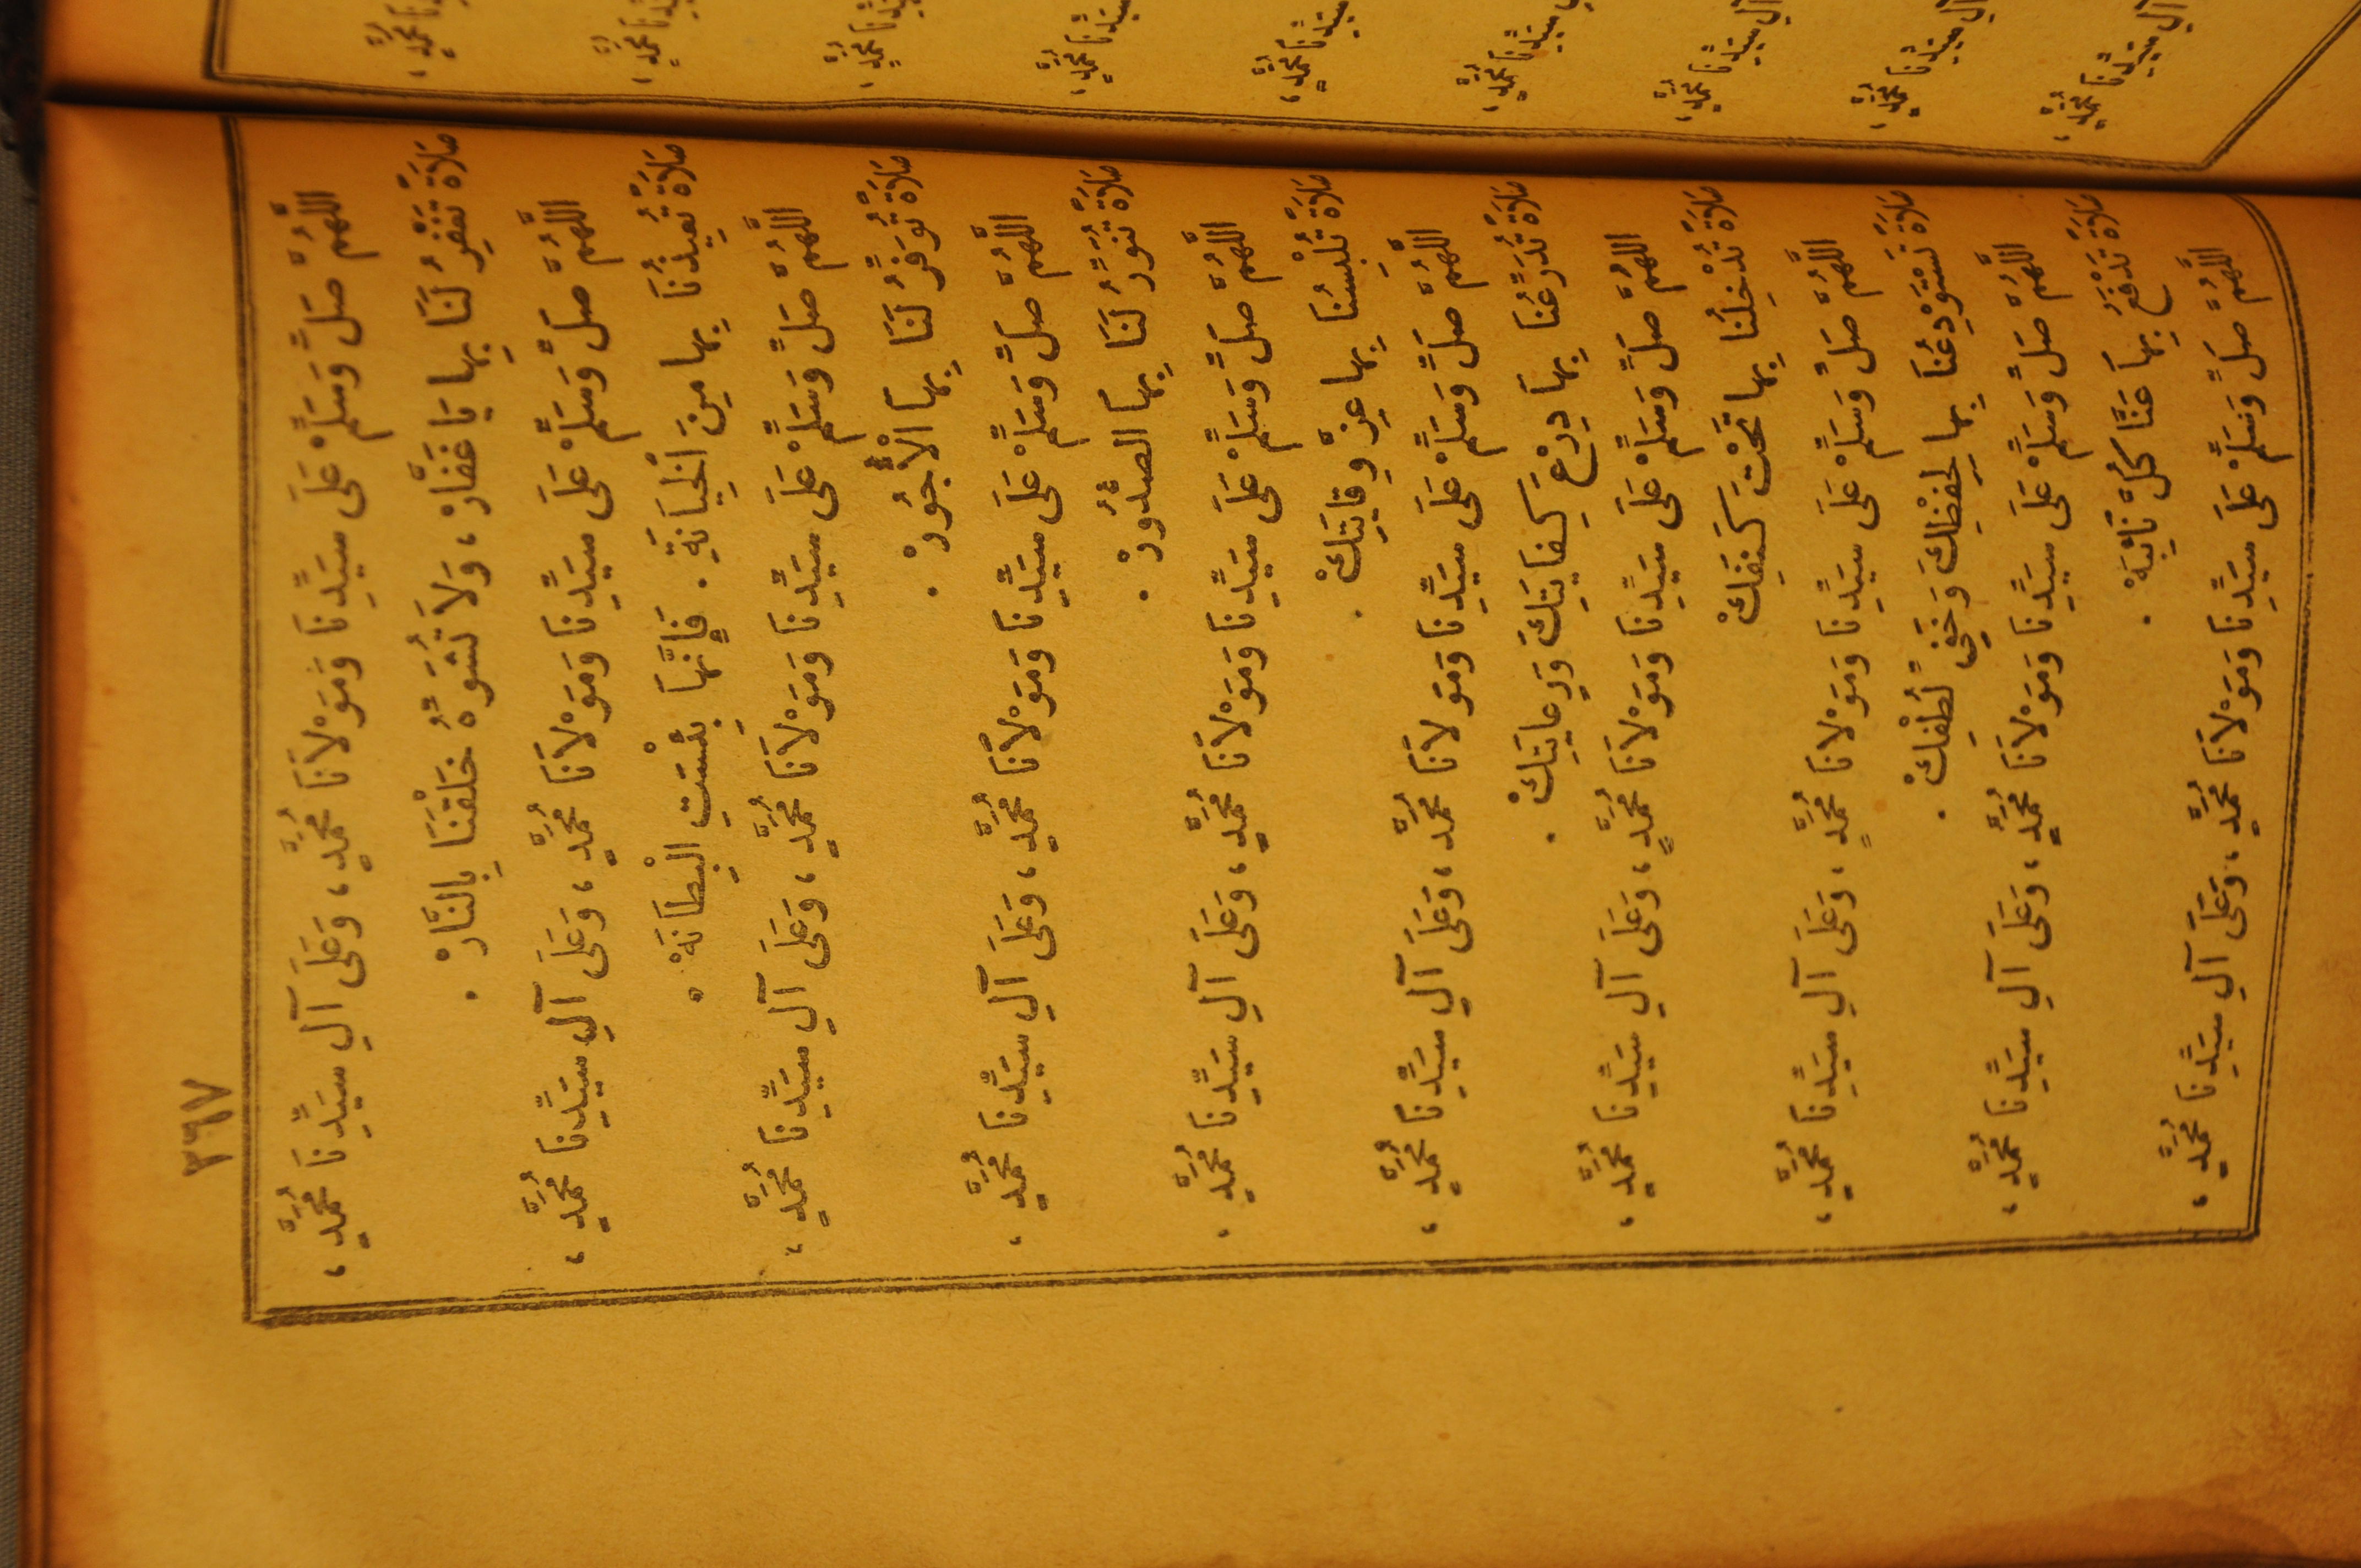 ٣٦٧
اللَّهُمَّ صَلِّ وَسَلِّمْ عَلَى سَيِّدِنَا وَمَوْلَانَا مُحَمَّدٍ، وَعَلَى آلِ سَيِّدِنَا مُحَمَّدٍ،
صَلَاةً تَغْفِرُ لَنَا بِهَا يَا غَفَّارْ، وَلَا تُشَوِّهُ خَلْقَنَا بِالنَّارْ.
اللَّهُمَّ صَلِّ وَسَلِّمْ عَلَى سَيِّدِنَا وَمَوْلَانَا مُحَمَّدٍ، وَعَلَى آلِ سَيِّدِنَا مُحَمَّدٍ،
صَلَاةً تُعِيذُنَا بِهَا مِنَ الْخِيَانَةِ. فَإِنَّهَا بِئْسَتِ الْبِطَانَةْ.
اللَّهُمَّ صَلِّ وَسَلِّمْ عَلَى سَيِّدِنَا وَمَوْلَانَا مُحَمَّدٍ، وَعَلَى آلِ سَيِّدِنَا مُحَمَّدٍ،
صَلَاةً تُوَفِّرُ لَنَا بِهَا الْأُجُورْ.
اللَّهُمَّ صَلِّ وَسَلِّمْ عَلَى سَيِّدِنَا وَمَوْلَانَا مُحَمَّدٍ، وَعَلَى آلِ سَيِّدِنَا مُحَمَّدٍ،
صَلَاةً تُنَوِّرُ لَنَا بِهَا الصُّدُورْ.
اللَّهُمَّ صَلِّ وَسَلِّمْ عَلَى سَيِّدِنَا وَمَوْلَانَا مُحَمَّدٍ، وَعَلَى آلِ سَيِّدِنَا مُحَمَّدٍ،
صَلَاةً تُلْبِسُنَا بِهَا عِزَّ وِقَايَتِكْ.
اللَّهُمَّ صَلِّ وَسَلِّمْ عَلَى سَيِّدِنَا وَمَوْلَانَا مُحَمَّدٍ، وَعَلَى آلِ سَيِّدِنَا مُحَمَّدٍ،
صَلَاةً تُدَرِّعُنَا بِهَا دِرْعَ كِفَايَتِكَ وَرِعَايَتِكْ.
اللَّهُمَّ صَلِّ وَسَلِّمْ عَلَى سَيِّدِنَا وَمَوْلَانَا مُحَمَّدٍ، وَعَلَى آلِ سَيِّدِنَا مُحَمَّدٍ،
صَلَاةً تُدْخِلُنَا بِهَا تَحْتَ كَنَفِكْ
اللَّهُمَّ صَلِّ وَسَلِّمْ عَلَى سَيِّدِنَا وَمَوْلَانَا مُحَمَّدٍ، وَعَلَى آلِ سَيِّدِنَا مُحَمَّدٍ،
صَلَاةً تَسْتَوْدِعُنَا بِهَا لِحِفْظِكَ وَخَفِيِّ لُطْفِكْ.
اللَّهُمَّ صَلِّ وَسَلِّمْ عَلَى سَيِّدِنَا وَمَوْلَانَا مُحَمَّدٍ، وَعَلَى آلِ سَيِّدِنَا مُحَمَّدٍ،
صَلَاةً تَدْفَعُ بِهَا عَنَّا كُلَّ نَائِبَةْ.
اللَّهُمَّ صَلِّ وَسَلِّمْ عَلَى سَيِّدِنَا وَمَوْلَانَا مُحَمَّدٍ، وَعَلَى آلِ سَيِّدِنَا مُحَمَّدٍ،
مُحَمَّدٍ،
مُحَمَّدٍ،
مُحَمَّدٍ،
سَيِّدِنَا مُحَمَّدٍ،
سَيِّدِنَا مُحَمَّدٍ،
سَيِّدِنَا مُحَمَّدٍ،
آلِ سَيِّدِنَا مُحَمَّدٍ،
آلِ سَيِّدِنَا مُحَمَّدٍ،
آلِ سَيِّدِنَا مُحَمَّدٍ،